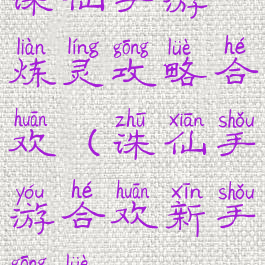 诛仙手游
liàn líng gōng lüè hé
炼灵攻略合
huān zhū xiān shǒu
欢（诛仙手
yóu hé huān xīn shǒu
游合欢新手
gōng lüè